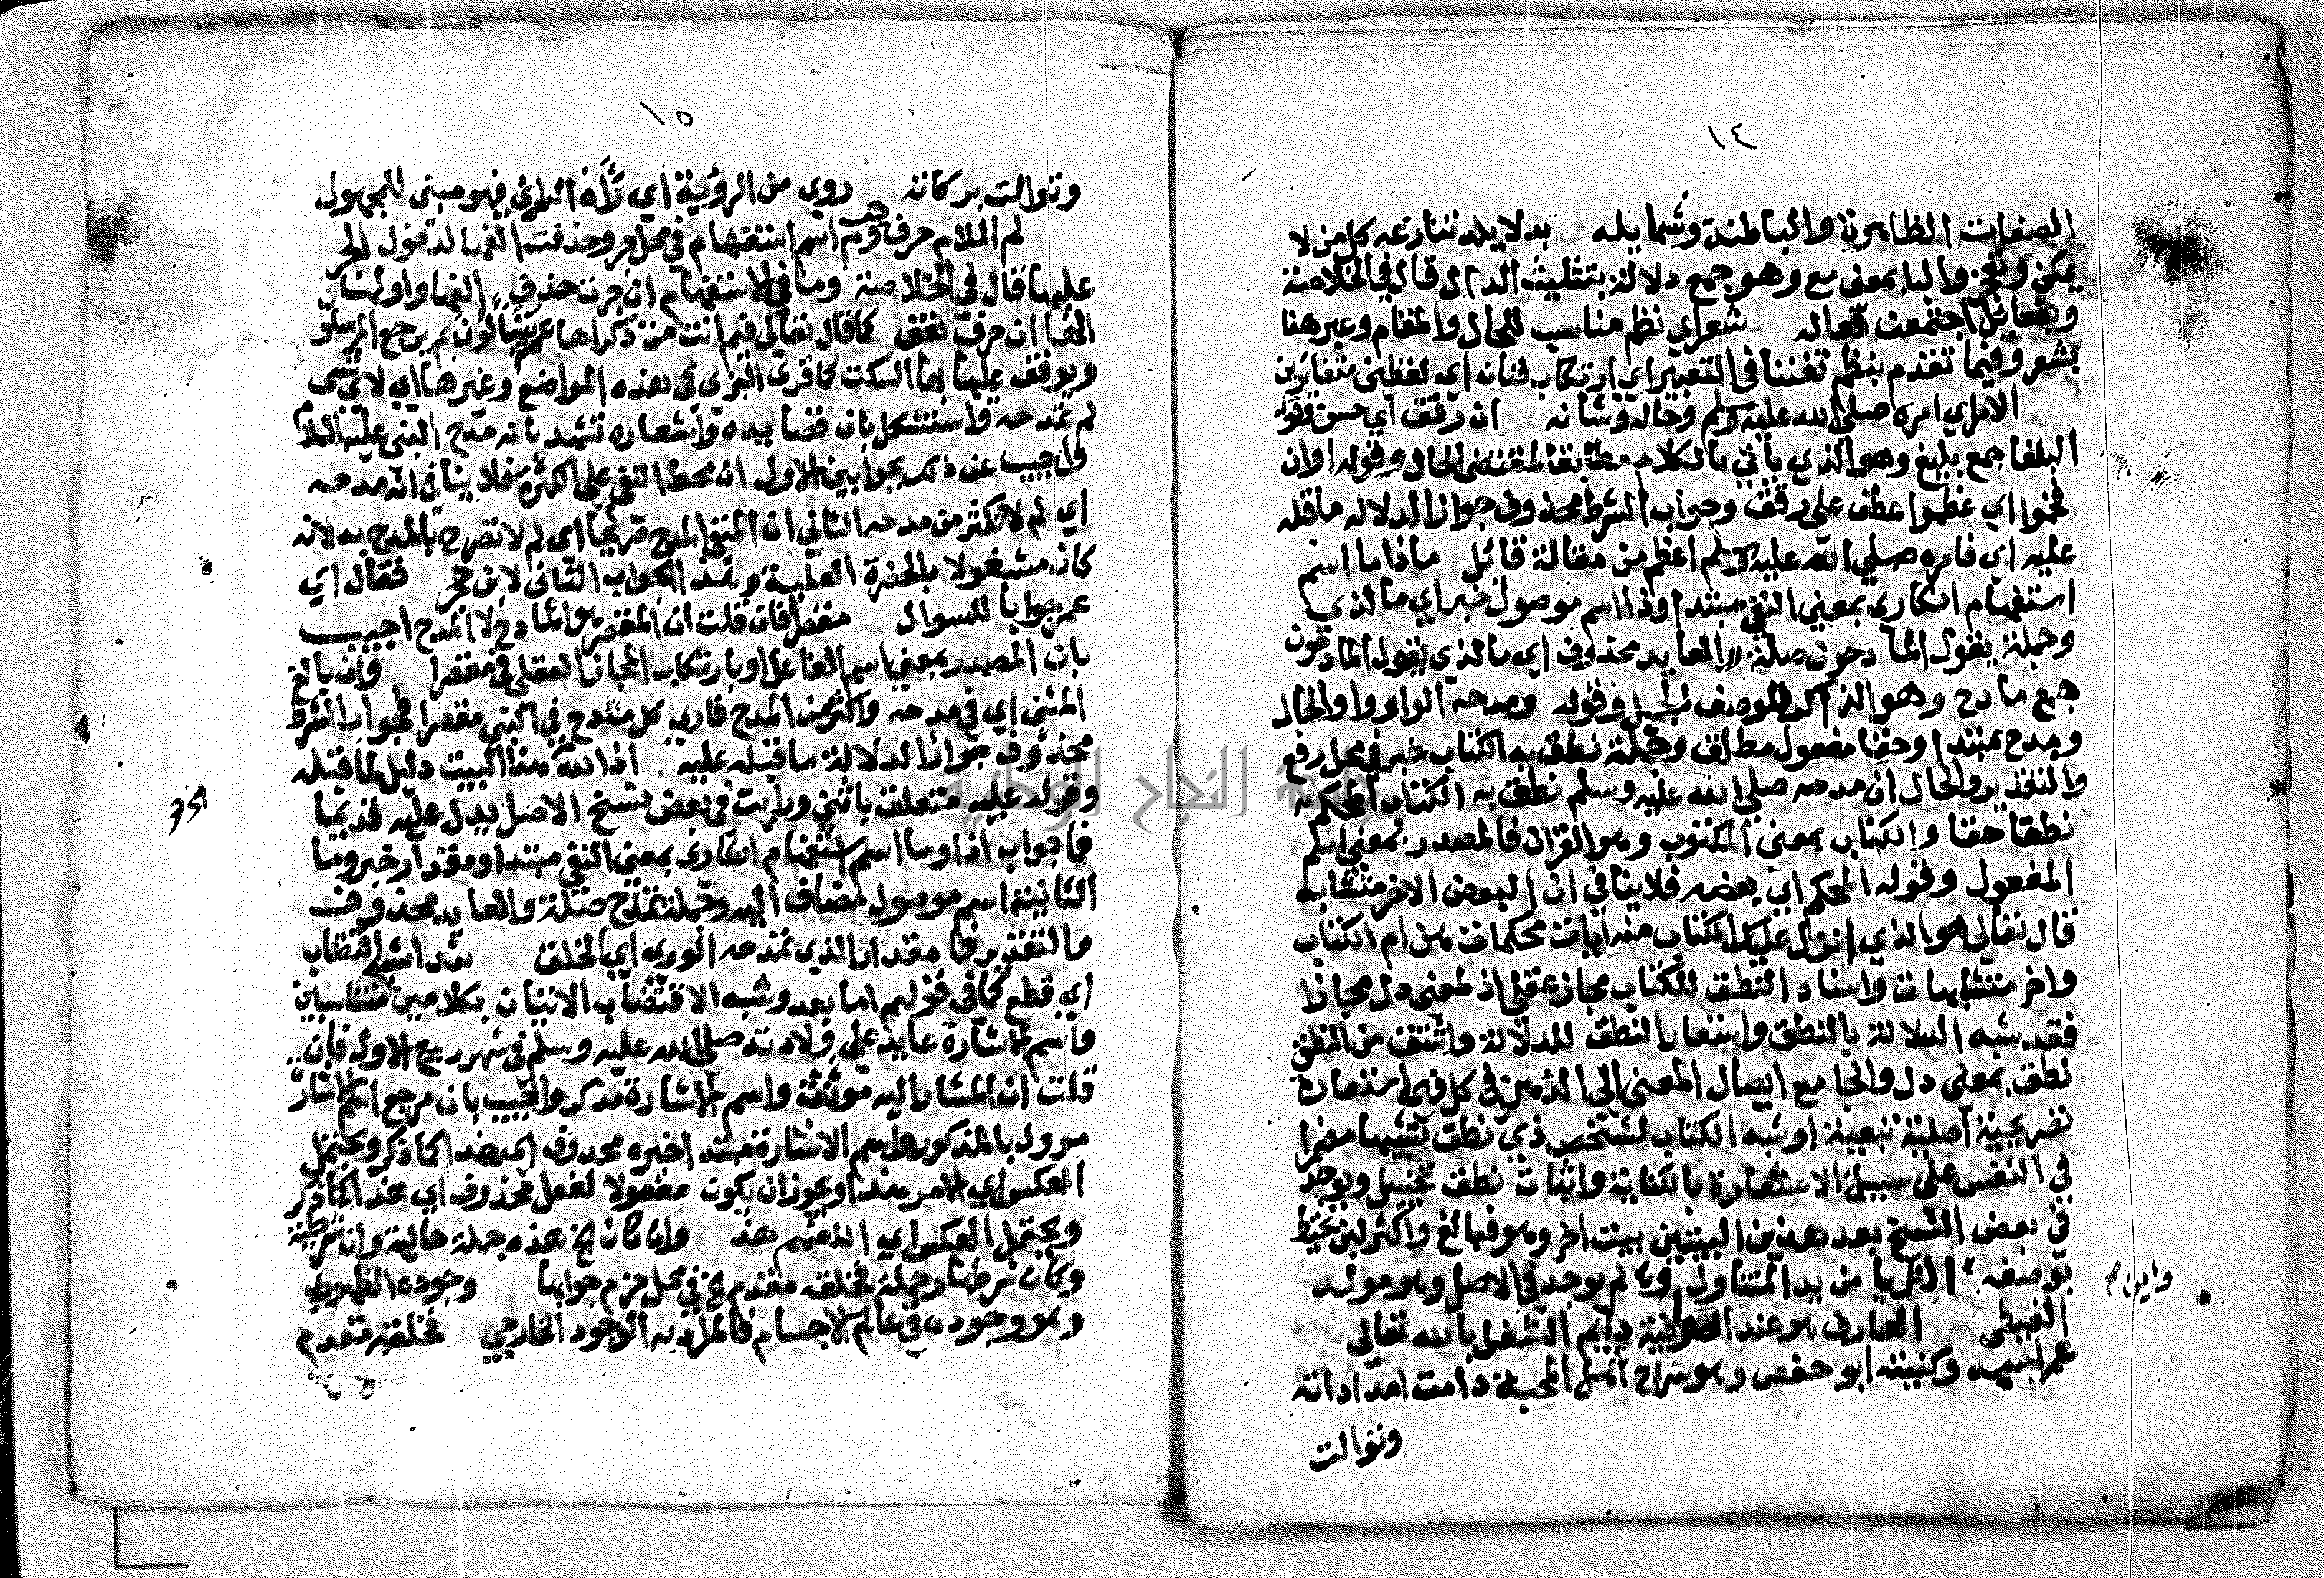 ١٤
الصفات الظاهرة والباطنة وشمايله بدلايله تنازعه كل من لا
يمكن ويخز والبا بمعنى مع وهو جمع دلالة بتثليث الدال قال في الخلاصة
وبفعائل اجمعن فعاله شعر اي نظم مناسب للحال والمقام وعبر هنا
بشعر وفيما تقدم بنظم تفننا في التعبير اي ارتكاب فنان اي لفظين متغايرين
الامر اي امره صلى الله عليه وسلم وحاله وشانه ان دققت اي حسن وقوله
البلغا جمع بليغ وهو الذي يأتي بالكلام مطابقا لمقتضى الحال وقوله اوان
فخموا اي عظموا عطف على دققت وجواب الشرط محذوف جوازا لدلاله ما قبله
عليه اي فامره صلي الله عليه وسلم اعظم من مقالة قائل ماذا ما اسم
استفهام انكاري بمعنى النفي مبتدا وذا اسم موصول خبر اي ما الذي
وجملة يقول المادحون صلة والعايد محذوف اي ما الذي يقول المادحون
جمع مادح وهو الذاكر للوصف الجميل وقوله ومدحه الواو واو الحال
ومدح مبتدا وحقا مفعول مطلق وجملة نطق به الكتاب خبر في محل رفع
والتقدير والحال ان مدحه صلي الله عليه وسلم نطق به الكتاب المحكم به
نطقا حقا والكتاب بمعنى المكتوب وهو القران فالمصدر بمعنى اسم
المفعول وقوله المحكم اي بعضه فلا ينافي ان البعض الاخر متشابه
قال تعالي هو الذي انزل عليك الكتاب منه ايات محكمات هن ام الكتاب
واخر متشابهات واسناد النطق للكتاب مجاز عقلي اذ لمعنى دل مجازا
فقد شبه الدلالة بالنطق واستعار النطق للدلالة واشتق من النطق
نطق بمعنى دل والجامع ايصال المعنى الي الذهن في كل فهي استعارة
تصريحية اصلية تبعية او شبه الكتاب لشخص ذي نطق تشبيها مضمرا
في النفس على سبيل الاستعارة بالكناية واثبات نطق تخييل ويوجد
في بعض النسخ بعد هذين البيتين بيت اخر وهو فبالغ واكثر لن تحيط
بوصفه * الثريا من يد المتناول ولم يوجد في الاصل وهو مولد
واين م
الغيطي العارف هو عند الصوفية دايم الشغل بالله تعالى
عمر اسمه وكنيته ابو حفص وهو سراج اهل المحبة دامت امداداته
وتوالت
١٥
وتوالت بركاته روي من الرؤية اي رأه الرائي فهو مبني للمجهول
لم اللام حرف جر وم اسم استفهام في محل جر وحذفت الفها لدخول الجر
عليها قال في الخلاصة وما في الاستفهام ان جرت حذف الفها واولها
الها ان حرف تقف كما قال تعالى فيم انت من ذكراها عم يتسالون بم يرجع المرسلون
ويوقف عليها بها السكت كما قرئ البزي في هذه المواضع وغيرها اي لاي شي
لم تمدحه واستشكل بان قصايده واشعاره تشهد بانه مدح النبي عليه السلام
واجيب عن ذلك بجوابين الاول ان محط النفي على الكثرة فلا ينافي انه مدحه
اي لم لا تكثر من مدحه الثاني ان المنفي المدح صريحا اي لم لا تصرح بالمدح به لانه
كان مشغولا بالحضرة العلية وهذا الجواب الثاني لابن حجر فقال اي
عمر جوابا للسوال مقصرا فان قلت ان المقصر هو المادح لا المدح اجيب
بان المصدر بمعنى اسم الفاعل او بارتكاب المجاز العقلي في مقصرا وان بالغ
المثني اي في مدحه واكثر من المدح فاري كل مدح في النبي مقصرا فجواب الشرط
محذوف جوازا لدلالة ما قبله عليه اذا الله هذا البيت دليل لما قبله
وقوله عليه متعلق باثني ورايت في بعض نسخ الاصل يدل عليه قد بما
فما جواب اذا وما اسم استفهام انكاري بمعنى النفي مبتدا ومقدار خبر وما
الثانية اسم موصول مضاف اليه وجملة تمدح صلة والعايد محذوف
والتقدير فما مقدار الذي تمدحه الورى اي الخلق هذا شبه اقتضاب
اي قطع كما في قولهم اما بعد وشبه الاقتضاب الاتيان بكلامين متناسبين
واسم الاشارة عايد على ولادته صلى الله عليه وسلم في شهر ربيع الاول فان
قلت ان المشار اليه مؤنث واسم الاشارة مذكر واجيب بان مرجع اسم الاشارة
موول بالمذكور واسم الاشارة مبتدا خبره محذوف اي هذا كما ذكر ويحتمل
العكس اي الامر هذا ويجوز ان يكون مفعولا لفعل محذوف اي خذ هذا كما ذكر
ويحتمل العكس اي افهم هذا ولما كان الخ هذه جملة حالية ولما شرطية
وكان شرطها وجملة لخلقه مقدم الخ في محل جزم جوابها وجوده الظهوري
وهو وجوده في عالم الاجسام فالمراد به الوجود الخارجي لخلقه متقدم